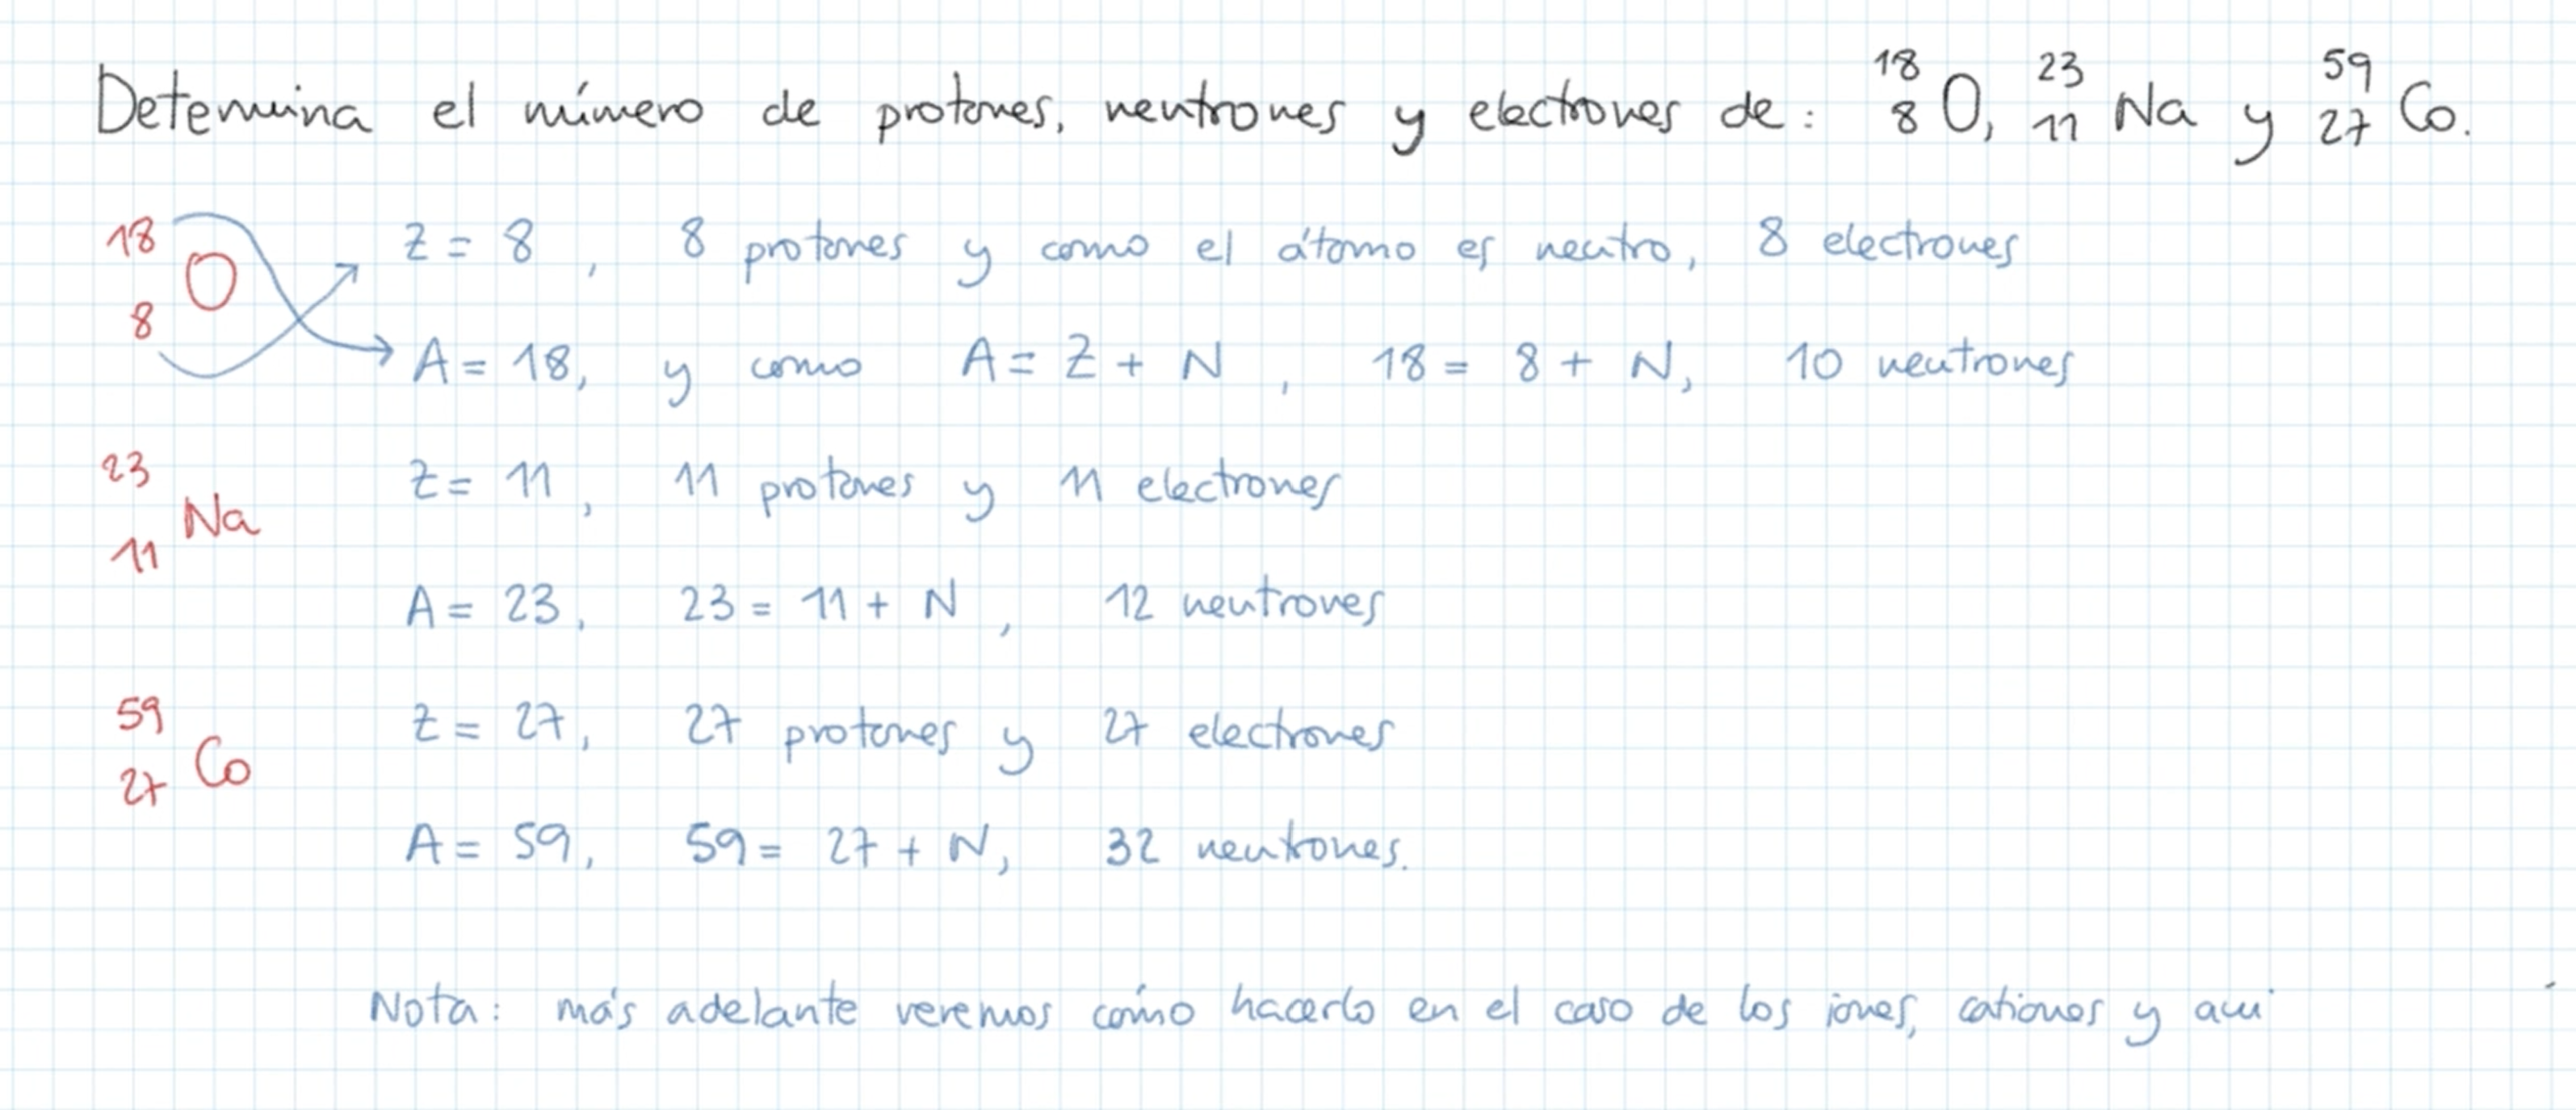 Determina el número de protones, neutrones y electrones de: ¹⁸₈O, ²³₁₁Na y ⁵⁹₂₇Co.
¹⁸₈O Z = 8, 8 protones y como el átomo es neutro, 8 electrones
A = 18, y como A = Z + N, 18 = 8 + N, 10 neutrones
²³₁₁Na Z = 11, 11 protones y 11 electrones
A = 23, 23 = 11 + N, 12 neutrones
⁵⁹₂₇Co Z = 27, 27 protones y 27 electrones
A = 59, 59 = 27 + N, 32 neutrones.
Nota: más adelante veremos cómo hacerlo en el caso de los iones, cationes y ani